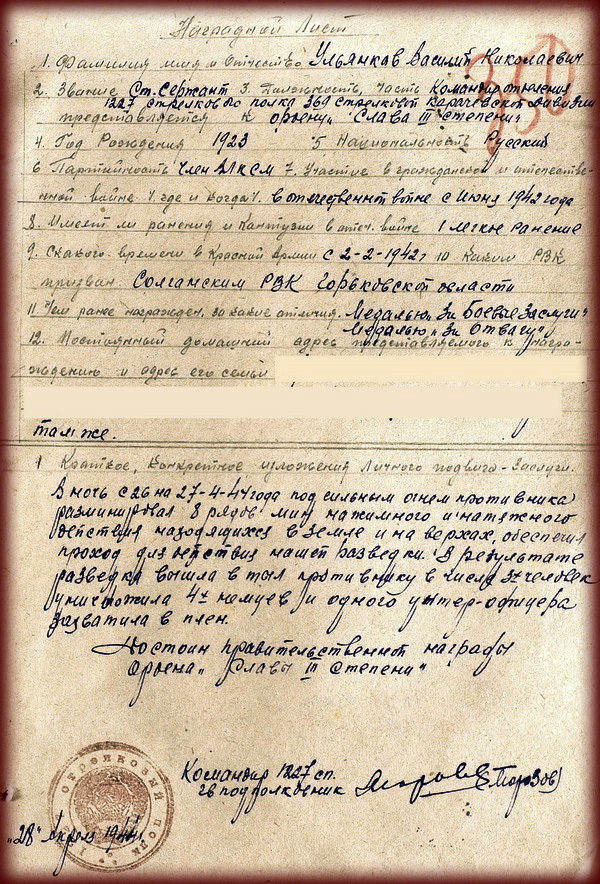 Наградной Лист
1. Фамилия имя и Отчество Ульянков Василий Николаевич
2. Звание Ст. Сержант 3. Должность, часть Командир отделения
1227 стрелкового полка 369 стрелковой Карачевской дивизии
представляется к ордену "Слава III степени"
4. Год Рождения 1923 5 Национальность Русский
6 Партийность Член ВЛКСМ 7. Участие в гражданской и отечестве-
нной войне (где и когда). в отечественной войне с Июня 1942 года
8. Имеет ли ранения и контузии в отеч. войне 1 легкое ранение
9. С какого времени в Красной Армии с 2-2-1942 г 10 Каким РВК
призван. Солганским РВК Горьковской области
11 Чем ранее награжден. за какие отличия. Медалью „За Боевые Заслуги"
Медалью „За Отвагу"
12. Постоянный домашний адрес представляемого к награ-
ждению и адрес его семьи
там же.
1 Краткое, конкретное изложения личного подвига-заслуги.
В ночь с 26 на 27-4-44 года под сильным огнем противника
разминировал 8 рядов мин нажимного и натяжного
действия находящихся в земле и на верхах, обеспечил
проход для действия нашей разведки. В результате
разведка вышла в тыл противнику в числе человек
уничтожила 4х немцев и одного унтер-офицера
захватила в плен.
Достоин правительственной награды
Ордена „Славы III Степени"
Командир 1227 сп.
гв подполковник (Морозов)
стрелковый полк
„28" Апрель 1944г